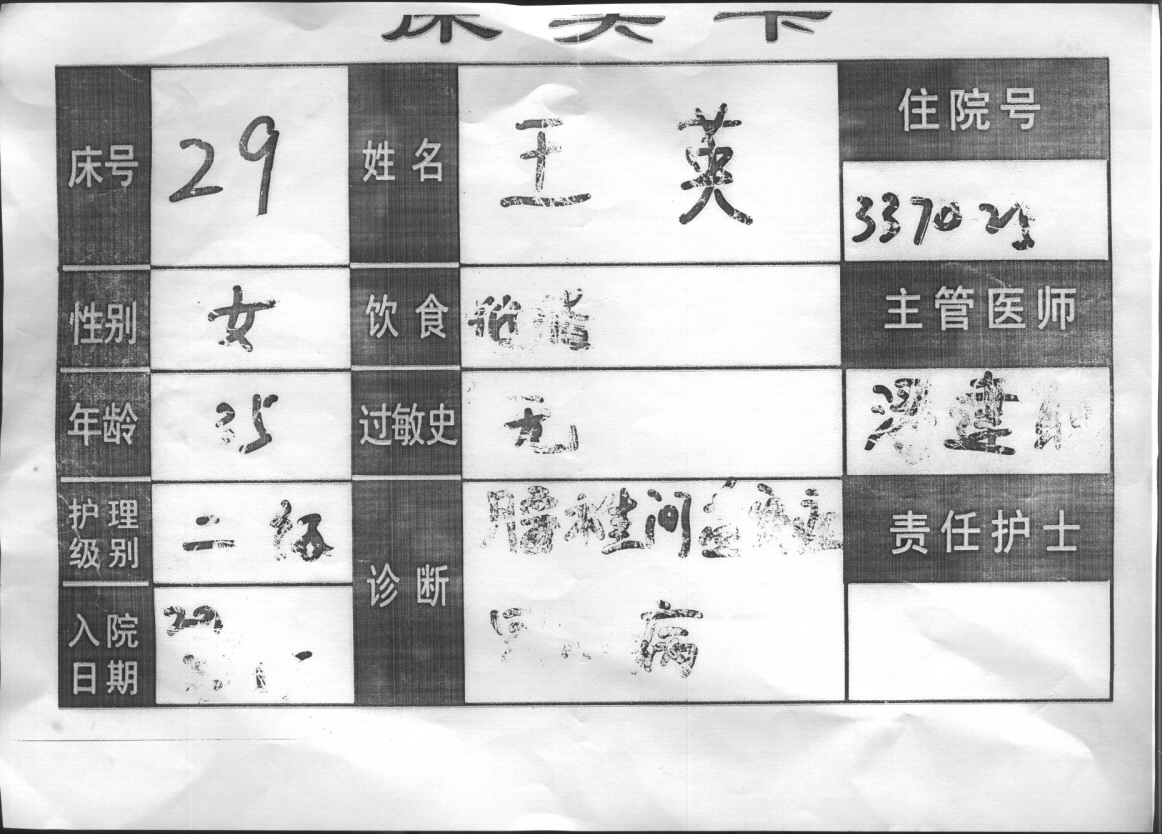 床头卡
床号 29 姓名 王英 住院号
337025
性别 女 饮食 主管医师
年龄 35 过敏史 无
护理级别 二级 诊断 腰椎间盘突出 责任护士
入院日期 病